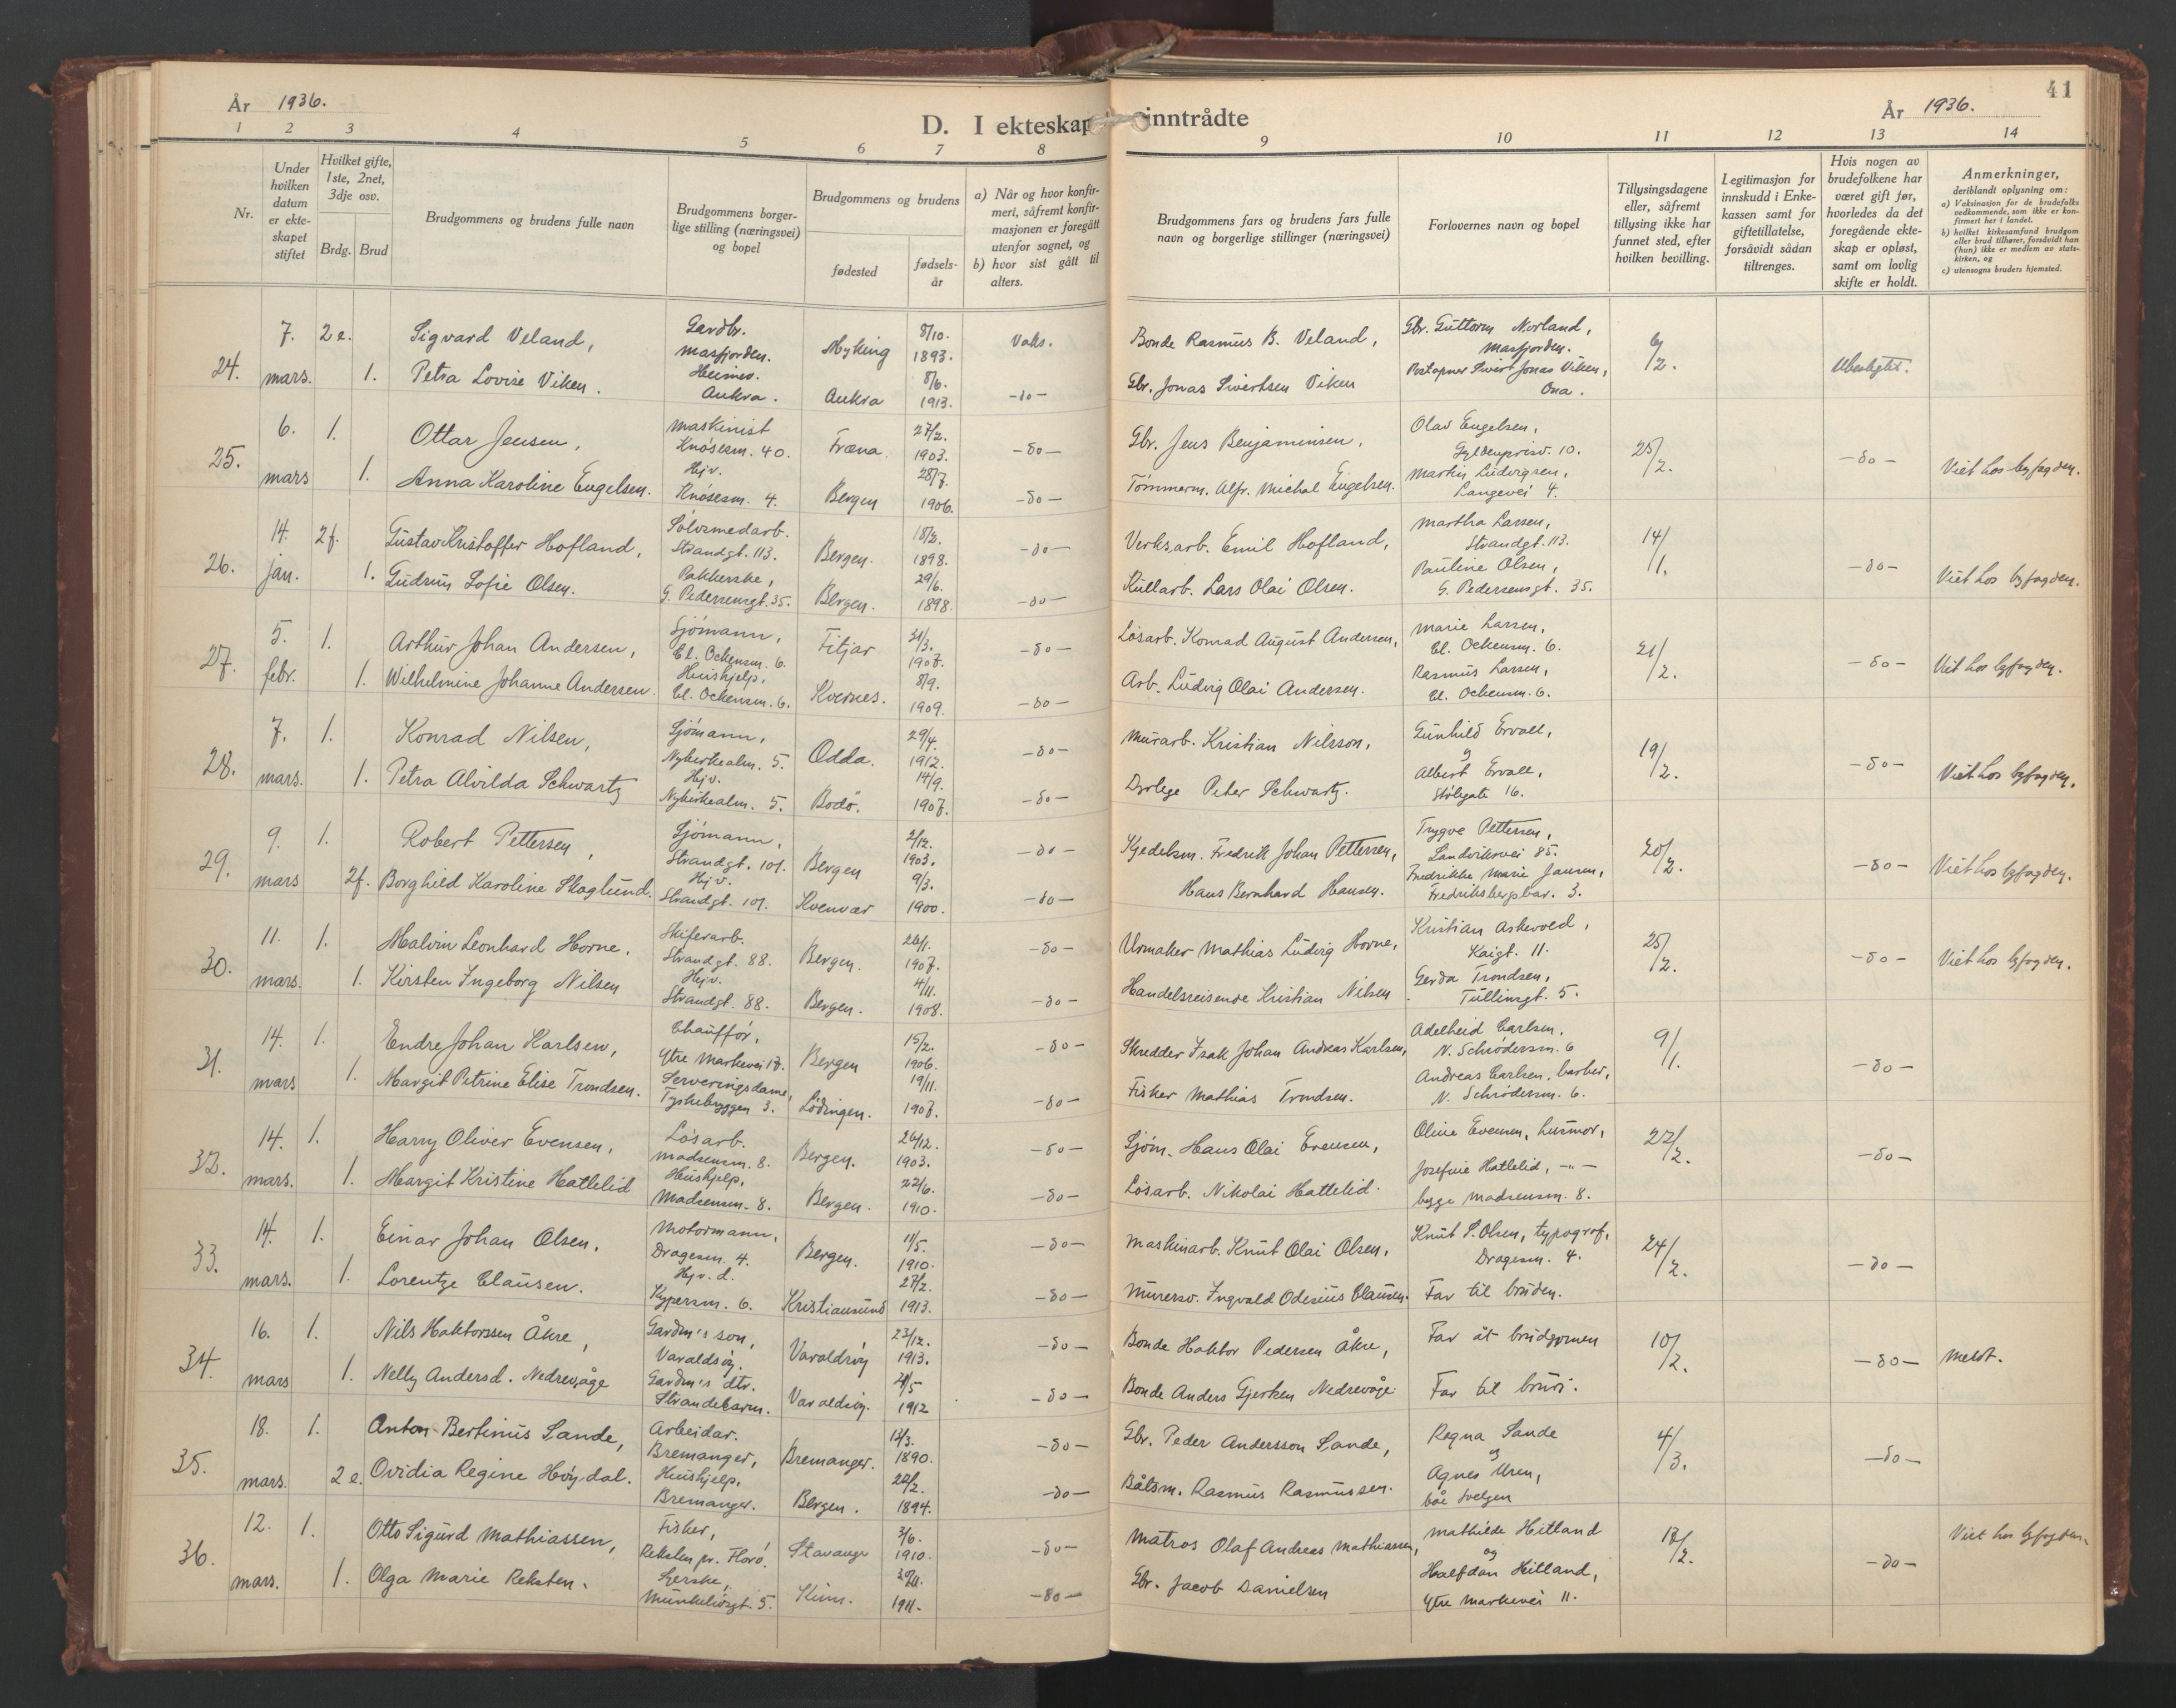 41
År 1936.
D. I ekteskap inntrådte
År 1936.
1 2 3 4 5 6 7 8 9 10 11 12 13 14
Nr.
Under hvilken datum er ekteskapet stiftet
Hvilket gifte, 1ste, 2net, 3dje osv.
Brdg. Brud
Brudgommens og brudens fulle navn
Brudgommens borgerlige stilling (næringsvei) og bopel
Brudgommens og brudens
fødested
fødselsår
a) Når og hvor konfirmert, såfremt konfirmasjonen er foregått utenfor sognet, og
b) hvor sist gått til alters.
Brudgommens fars og brudens fars fulle navn og borgerlige stillinger (næringsvei)
Forlovernes navn og bopel
Tillysingsdagene eller, såfremt tillysing ikke har funnet sted, efter hvilken bevilling.
Legitimasjon for innskudd i Enkekassen samt for giftetillatelse, forsåvidt sådan tiltrenges.
Hvis nogen av brudefolkene har været gift før, hvorledes da det foregående ekteskap er opløst, samt om lovlig skifte er holdt.
Anmerkninger,
deriblandt oplysning om:
a) Vaksinasjon for de brudefolks vedkommende, som ikke er konfirmert her i landet.
b) hvilket kirkesamfund brudgom eller brud tilhører, forsåvidt han (hun) ikke er medlem av statskirken, og
c) utensogns bruders hjemsted.
24. 7. mars.
2 e. Sigvard Veland, Gardbr. Masfjorden. Myking 8/10. 1893. Vaks. Bonde Rasmus B. Veland, Gbr. Guttorm Norland, Masfjorden. 6/2. Ubesigtet.
1. Petra Lovise Viken. Heimev. Aukra. Aukra 8/6. 1913. -do- Gbr. Jonas Sivertsen Viken Postopner Sivert Jonas Viken, Ona.
25. 6. mars
1. Ottar Jensen, Maskinist Knøsesm. 40. Fræna. 27/2. 1903. -do- Gbr. Jens Benjaminsen, Olav Engelsen, Gyldenprisv. 10. 25/2. -do- Viet hos byfogden.
1. Anna Karoline Engelsen. Hjv. Knøsesm. 4. Bergen 28/7. 1906. -do- Tömmerm. Alfr. Michal Engelsen. Martin Ludvigsen, Langevei 4.
26. 14. jan.
2f. Gustav Kristoffer Hofland, Sølvsmedarb. Strandgt. 113. Bergen. 18/2. 1898. -do- Verksarb. Emil Hofland, Martha Larsen, Strandgt. 113. 14/1. -do- Viet hos byfogden.
1. Gudrun Sofie Olsen. Pakkerske, G. Pedersensgt. 35. Bergen. 29/6. 1898. -do- Kullarb. Lars Olai Olsen. Pauline Olsen, G. Pedersensgt. 35.
27. 5. febr.
1. Arthur Johan Andersen, Sjömann, Cl. Ockensm. 6. Fitjar 21/3. 1907. -do- Løsarb. Konrad August Andersen, Marie Larsen, Cl. Ockensm. 6. 21/2. -do- Viet hos byfogden.
1. Wilhelmine Johanne Andersen. Huishjelp, Cl. Ockensm. 6. Kvernes. 8/9. 1909. -do- Arb. Ludvig Olai Andersen. Rasmus Larsen, Cl. Ockensm. 6.
28. 7. mars.
1. Konrad Nilsen, Sjömann, Nykirkealm. 5. Odda. 29/4. 1912. -do- Murarb. Kristian Nilsson, Gunhild Ervall, og 19/2. -do- Viet hos byfogden.
1. Petra Alvilda Schwartz Hjv. Nykirkealm. 5. Bodö. 14/9. 1907. -do- Dyrlege Peter Schwartz. Albert Ervall, Stölegate 16.
29. 9. mars
1. Robert Pettersen, Sjömann, Strandgt. 101. Bergen 2/12. 1903. -do- Kjedelsm. Fredrik Johan Pettersen, Trygve Pettersen, Sandviksvei 85. 20/2. -do- Viet hos byfogden.
2f. Borghild Karoline Skoglund. Hjv. Strandgt. 101. Kvenvær 9/3. 1900. -do- Hans Bernhard Hansen. Fredrikke Marie Jansen, Fredriksbergsbar. 3.
30. 11. mars.
1. Malvin Leonhard Horne. Skiferarb. Strandgt. 88. Bergen. 26/1. 1907. -do- Urmaker Mathias Ludvig Horne, Kristian Askevold, Kaigt. 11. 25/2. -do- Viet hos byfogden.
1. Kirsten Ingeborg Nilsen Hjv. Strandgt. 88. Bergen. 4/11. 1908. -do- Handelsreisende Kristian Nilsen Gerda Trondsen, Tullinsgt. 5.
31. 14. mars
1. Endre Johan Karlsen, Chaufför, Ytre Markevei 17. Bergen 15/2. 1906. -do- Skredder Isak Johan Andreas Karlsen, Adelheid Carlsen. N. Schrödersm. 6 9/1. -do-
1. Margit Petrine Elise Trondsen. Serveringsdame, Tyskebryggen 3. Lödingen. 19/11. 1907. -do- Fisker Mathias Trondsen. Andreas Carlsen, barber, N. Schrödersm. 6.
32. 14. mars.
1. Harry Oliver Evensen, Løsarb. Madsensm. 8. Bergen. 26/12. 1903. -do- Sjöm. Hans Olai Evensen, Oline Evensen, husmor, 22/2. -do-
1. Margit Kristine Hatlelid Huishjelp, Madsensm. 8. Bergen. 22/6. 1910. -do- Løsarb. Nikolai Hattelid. Josefine Hatlelid, -"- begge Madsensm. 8.
33. 14. mars.
1. Einar Johan Olsen. Motormann, Dragesm. 4. Bergen. 11/5. 1910. -do- Maskinarb. Knut Olai Olsen, Knut S. Olsen, typograf, Dragesm. 4. 24/2. -do-
1. Lorentze Clausen. Hjv. d. Kypersm. 6. Kristiansund 27/2. 1913. -do- Murersv. Ingvald Odinius Clausen. Far til bruden.
34. 16. mars
1. Nils Haktorssen Åkre, Gardm's son, Varaldsöy. Varaldsöy 23/12. 1913. -do- Bonde Haktor Pedersen Åkre, Far åt brudgomen 10/2. -do- Meldt.
1. Nelly Andersd. Nedrevåge Gardm's dtr. Strandebarm. Varaldsöy. 21/5 1912 -do- Bonde Anders Gjerken Nedrevåge Far til brur.
35. 18. mars.
1. Anton Bertinus Sande, Arbeidar. Bremanger, Bremanger. 13/3. 1890. -do- Gbr. Peder Andersson Sande, Regna Sande og 4/3. -do-
2 e. Ovidia Regine Höydal. Huishjelp, Bremanger. Bergen. 22/2. 1894. -do- Båtsm. Rasmus Rasmussen. Agnes Uren, båe Svelgen
36. 12. mars.
1. Otto Sigurd Mathiassen, Fisker, Reksten pr. Florö. Stavanger 3/6. 1910. -do- Matros Olaf Andreas Mathiassen, Mathilde Hitland og 12/2. -do- Viet hos byfogden.
1. Olga Marie Reksten. Syerske, Munkelivsgt. 5. Kinn. 1911. -do- Gbr. Jacob Danielsen Halfdan Hitland, Ytre Markevei 11.